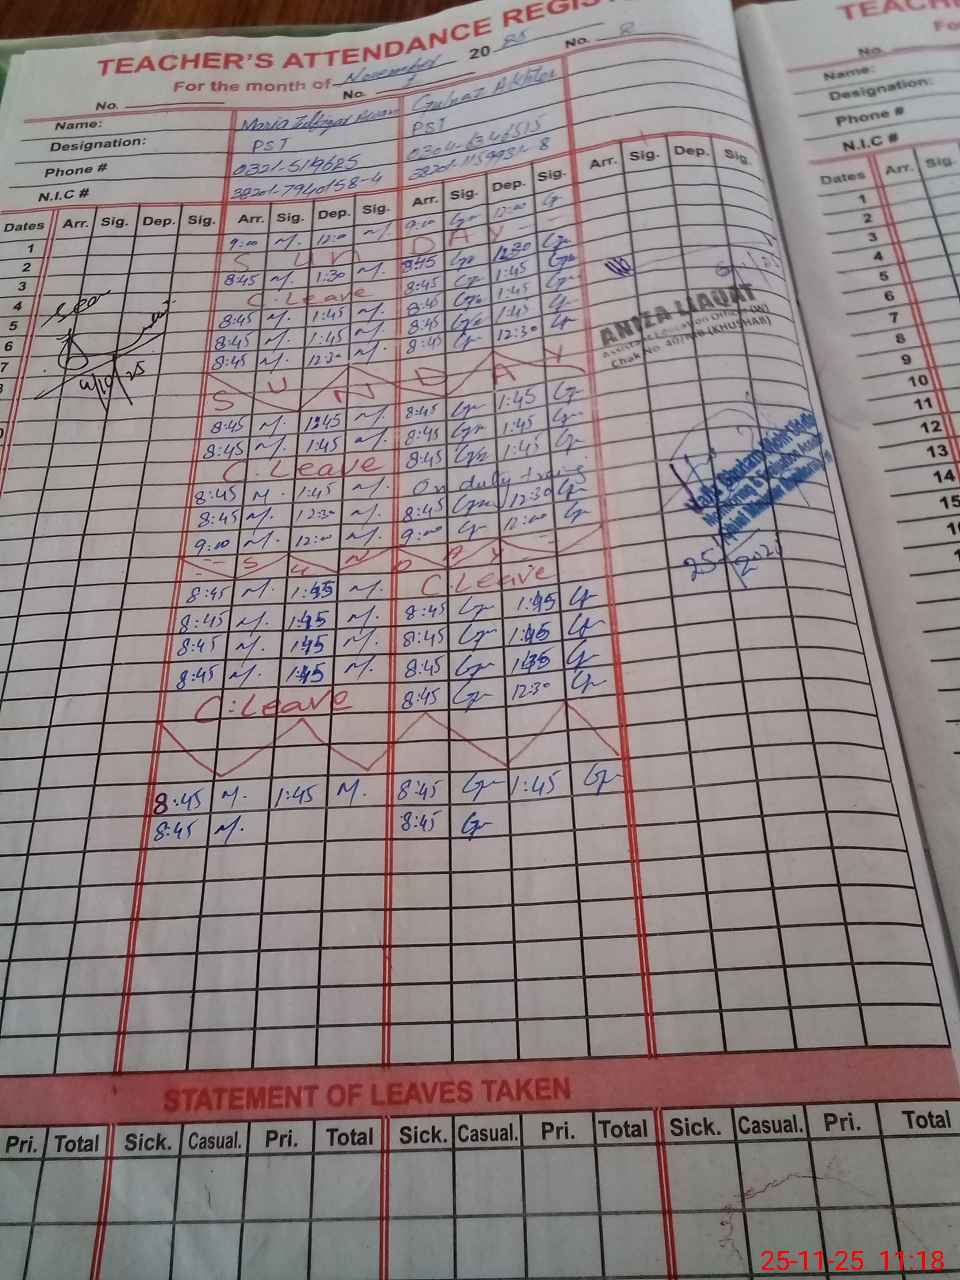 TEACHER'S ATTENDANCE REGIST
For the month of November 2025 No. 2
No. No.
Name: Maria Gulnaz Akhter
Designation: PST PST
Phone # 0321-519625 0304-6346515
N.I.C # 38201-7940158-4 38201-1159931-8
Dates Arr. Sig. Dep. Sig. Arr. Sig. Dep. Sig. Arr. Sig. Dep. Sig. Arr. Sig. Dep. Sig.
1 9:00 M. 12:00 M. 9:00 Gn 12:00 G
2 S U N D A Y
3 8:45 M. 1:30 M. 8:45 Gn 12:30 Gn
4 C. Leave 8:45 Gn 1:45 Gn
5 8:45 M. 1:45 M. 8:45 Gn 1:45 Gn
6 8:45 M. 1:45 M. 8:45 Gn 1:45 Gn
7 8:45 M. 12:30 M. 8:45 Gn 12:30 Gn
S U N D A Y
8:45 M. 1:45 M. 8:45 Gn 1:45 Gn
8:45 M. 1:45 M. 8:45 Gn 1:45 Gn
C. Leave 8:45 Gn 1:45 Gn
8:45 M. 1:45 M. On duty
8:45 M. 12:30 M. 8:45 Gn 12:30 Gn
9:00 M. 12:00 M. 9:00 Gn 12:00 Gn
S U N D A Y
8:45 M. 1:45 M. C. Leave
8:45 M. 1:45 M. 8:45 Gn 1:45 Gn
8:45 M. 1:45 M. 8:45 Gn 1:45 Gn
8:45 M. 1:45 M. 8:45 Gn 1:35 Gn
C: Leave 8:45 Gn 12:30 Gn
8:45 M. 1:45 M. 8:45 Gn 1:45 Gn
8:45 M. 8:45 Gn
ANIZA LIAQAT
Assistant Education Officer (W)
Chak No. 40/MB (KHUSHAB)
25 2025
STATEMENT OF LEAVES TAKEN
Pri. Total Sick. Casual. Pri. Total Sick. Casual. Pri. Total Sick. Casual. Pri. Total
TEAC
Fo
No.
Name:
Designation:
Phone #
N.I.C #
Dates Arr. Sig.
1
2
3
4
5
6
7
8
9
10
11
12
13
14
15
25-11-25 11:18